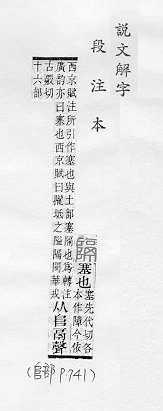 說文解字
段注本
隔
塞也
塞先代切各
本作障今依
西京賦注所引作塞也與土部塞隔也爲轉注
廣韵亦曰塞也西京賦曰隴坻之隘隔閡華戎
从𨸏鬲聲
古覈切
十六部
(𨸏部 P741)